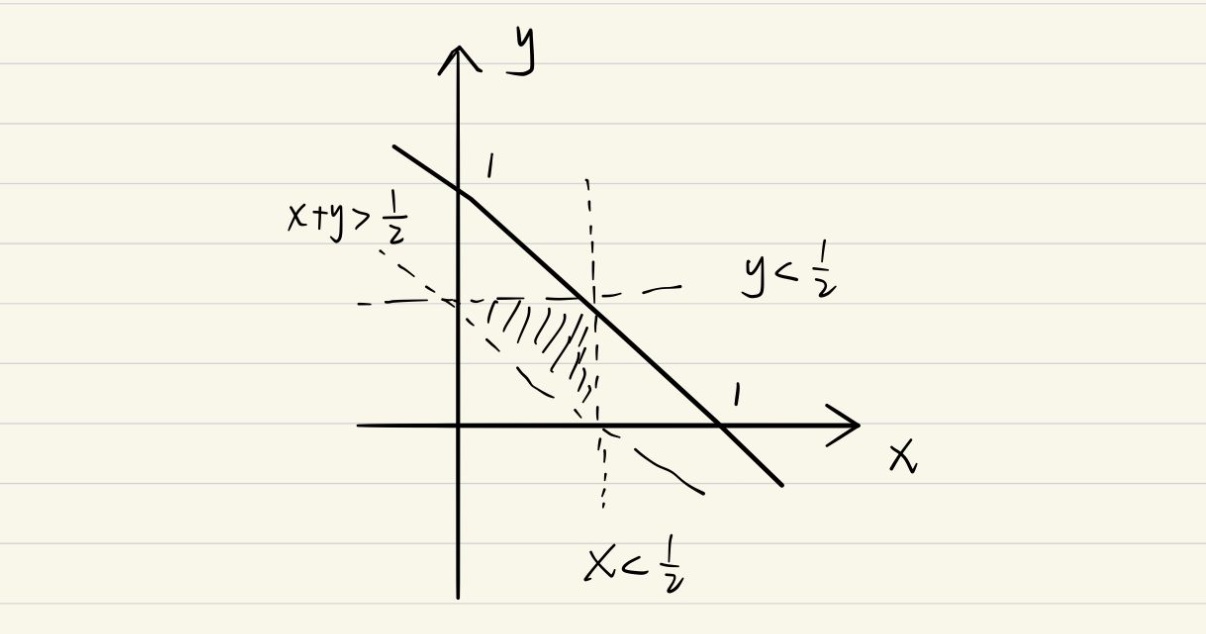 y
1
x+y> 1/2
y< 1/2
1
x
x< 1/2